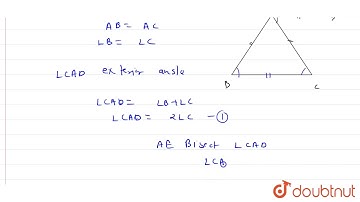 AB = AC
LB = LC
LCAD exterior angle
LCAD = LB+LC
LCAD = 2LC — ①
AE Bisect LCAD
LCA
B
C
doubtnut